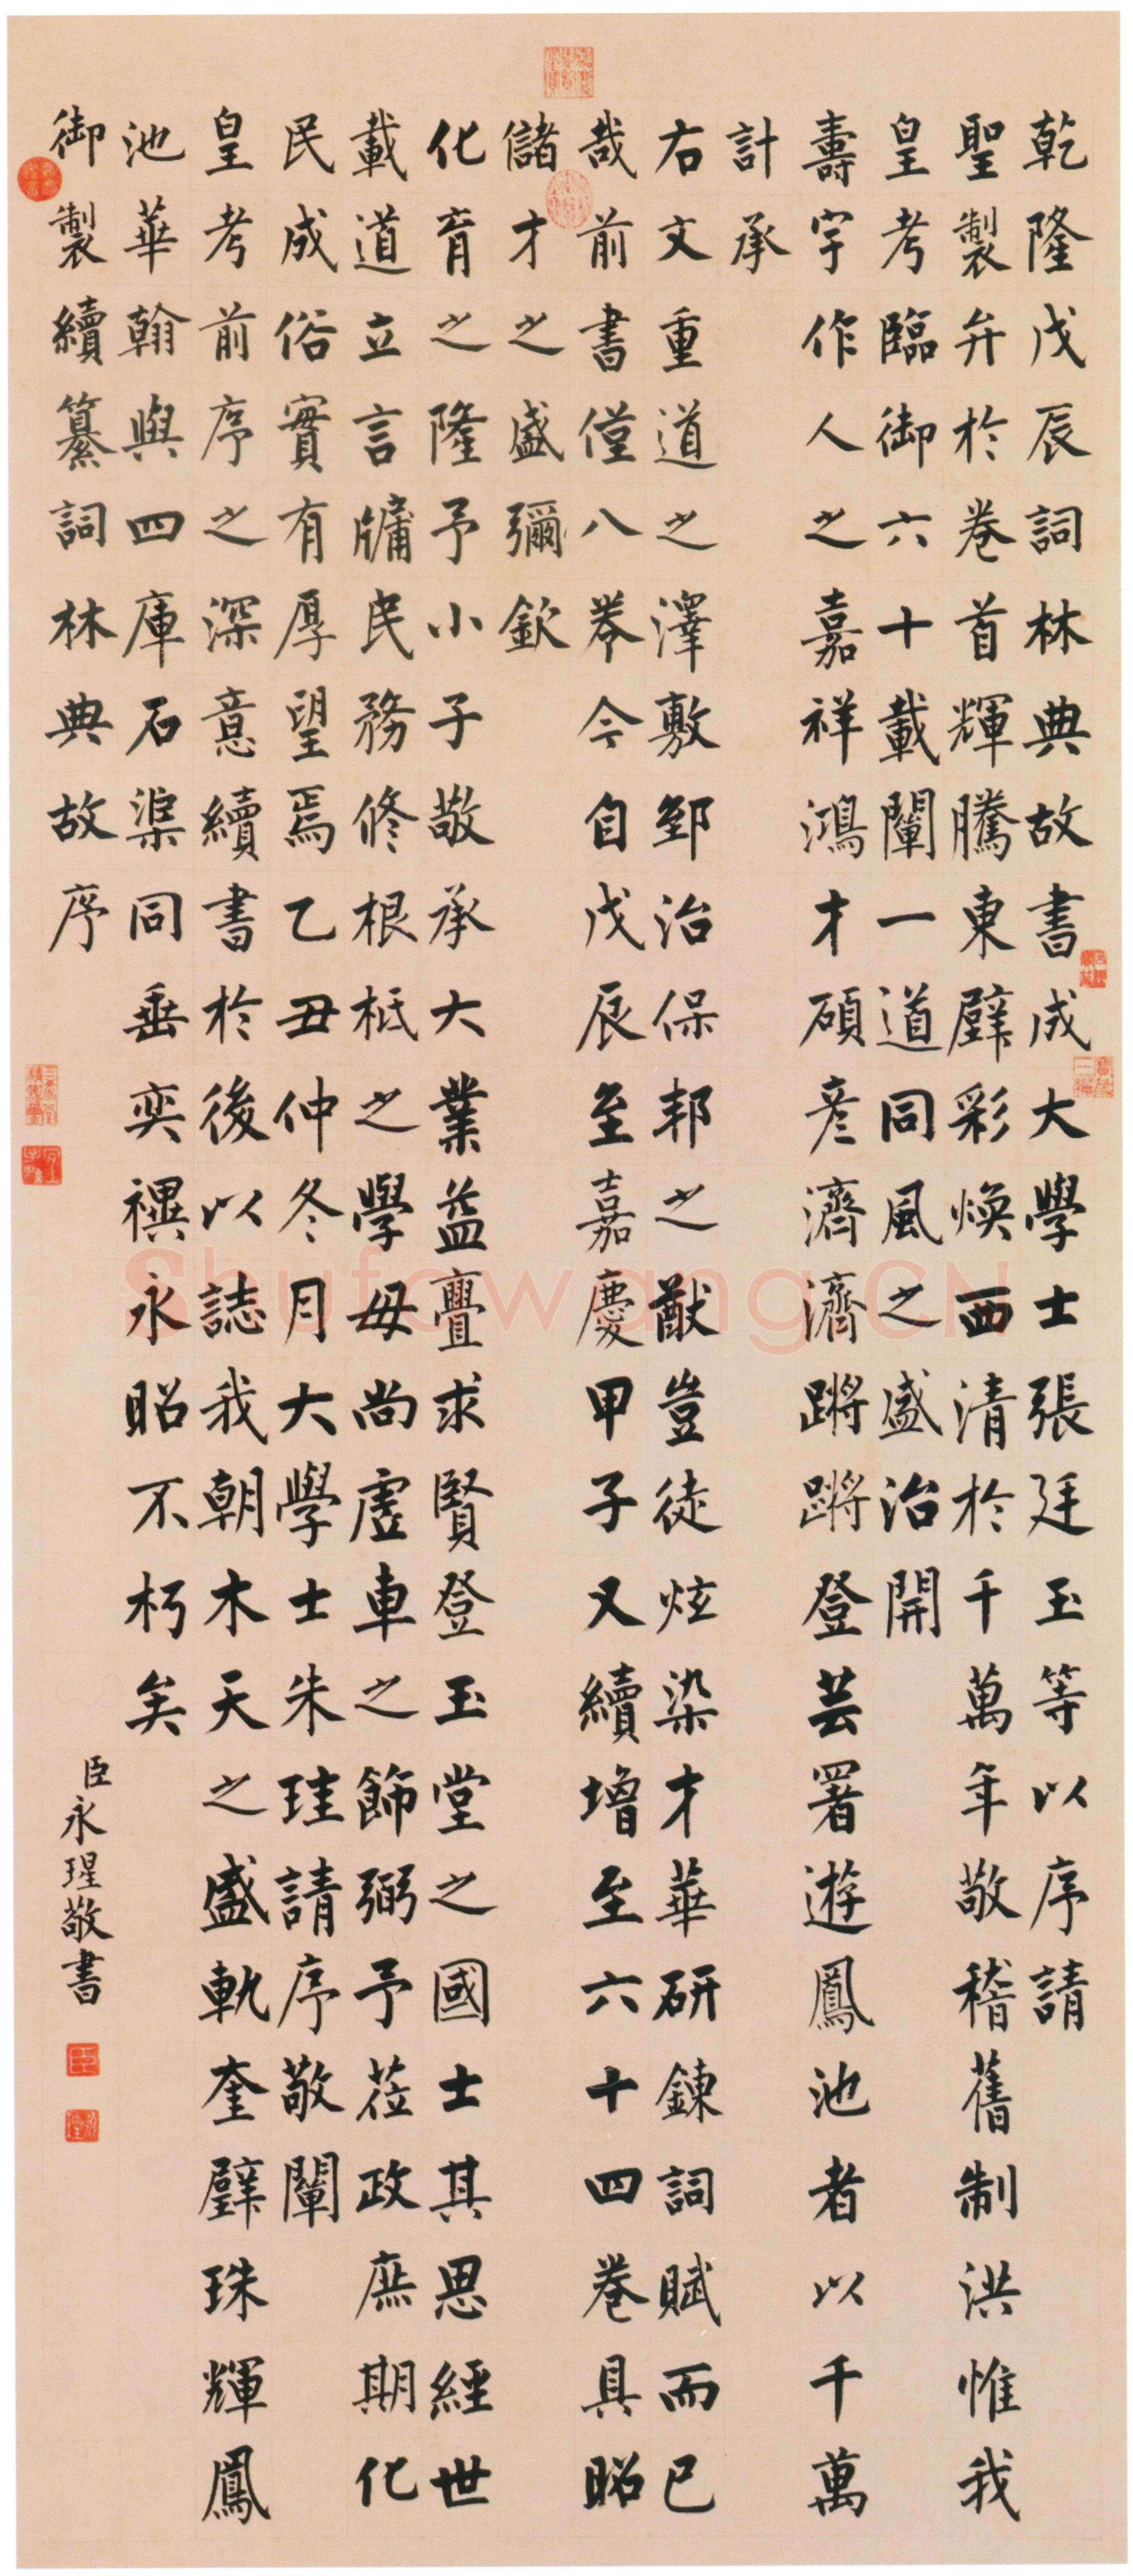 乾隆戊辰詞林典故書成大學士張廷玉等以序請
聖製弁於卷首輝騰東壁彩煥西清於千萬年敬稽舊制洪惟我
皇考臨御六十載闡一道同風之盛治開
壽宇作人之嘉祥鴻才碩彥濟濟蹡蹡登芸署遊鳳池者以千萬
計承
右文重道之澤敷郅治保邦之猷豈徒炫染才華研鍊詞賦而已
哉前書僅八卷今自戊辰至嘉慶甲子又續增至六十四卷具昭
儲才之盛彌欽
化育之隆予小子敬承大業益亹求賢登玉堂之國士其思經世
載道立言牖民務修根柢之學毋尚虛車之飾弼予蒞政庶期化
民成俗實有厚望焉乙丑仲冬月大學士朱珪請序敬闡
皇考前序之深意續書於後以誌我朝木天之盛軌奎壁珠輝鳳
池華翰與四庫石渠同垂奕禩永昭不朽矣
御製續纂詞林典故序
臣永瑆敬書
Shufawang.CN